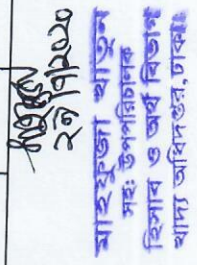 ২৭/৭/২০২০
মাহফুজা খাতুন
সহঃ উপপরিচালক
হিসাব ও অর্থ বিভাগ
খাদ্য অধিদপ্তর, ঢাকা।